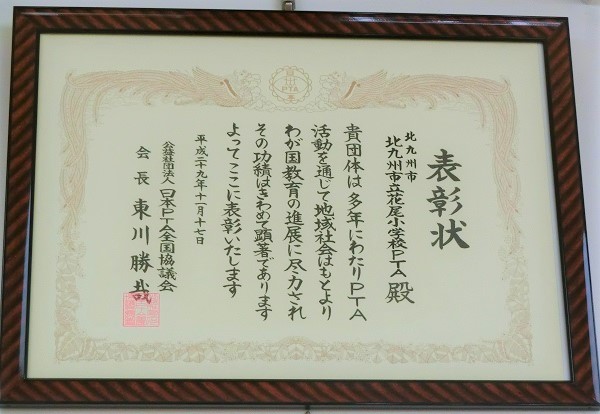 表彰状
北九州市
北九州市立花尾小学校PTA 殿
貴団体は多年にわたりPTA
活動を通じて地域社会はもとより
わが国教育の進展に尽力され
その功績はきわめて顕著であります
よってここに表彰いたします
平成二十九年十一月十七日
公益社団法人日本PTA全国協議会
会長 東川勝哉
PTA